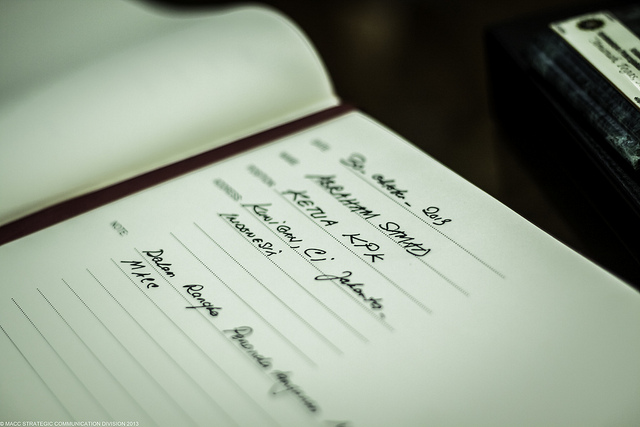 DATE 30 oktober - 2013
NAME ABRAHAM SAMAD
POSITION KETUA KPK
ADDRESS KUNINGAN, C1 Jakarta -
INDONESIA
NOTE
Dalam Rangka
MACC
© MACC STRATEGIC COMMUNICATION DIVISION 2013